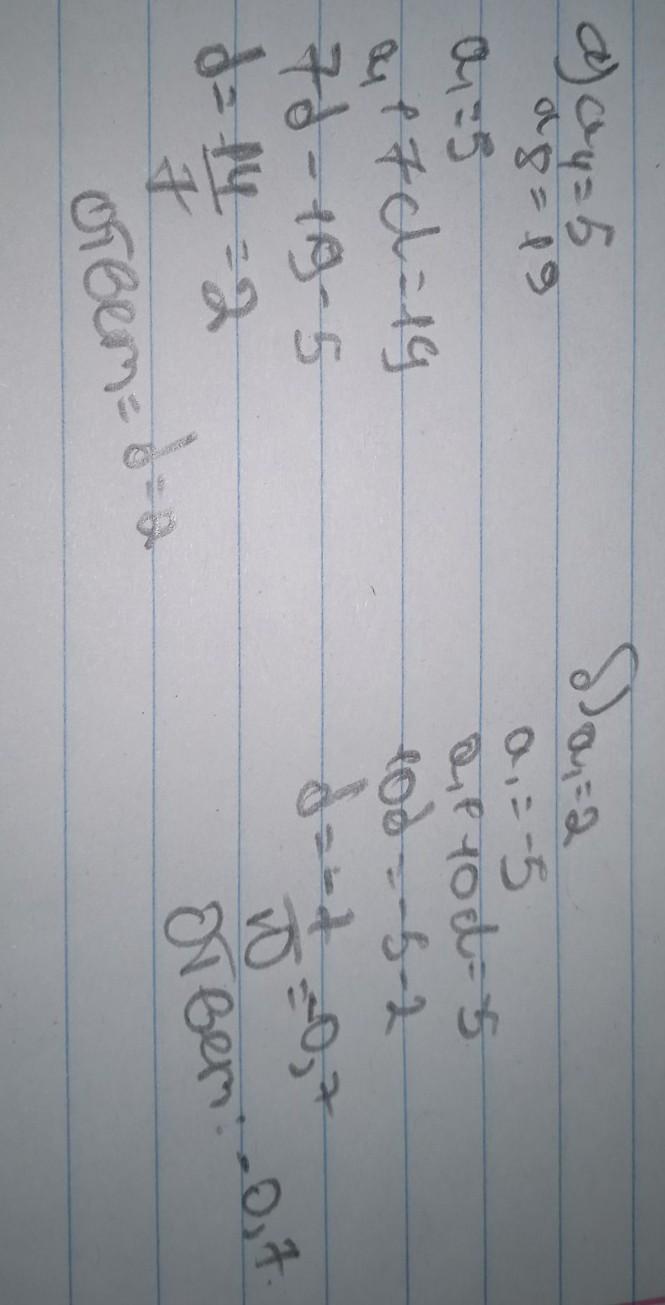 а) a4=5
a8=19
a1=5
a1+7d=19
7d-19-5
d=14/7=2
Ответ=d=2
б) a1=2
a1=-5
a1+10d=-5
10d=-5-2
d=-7/10=-0,7
Ответ: -0,7.